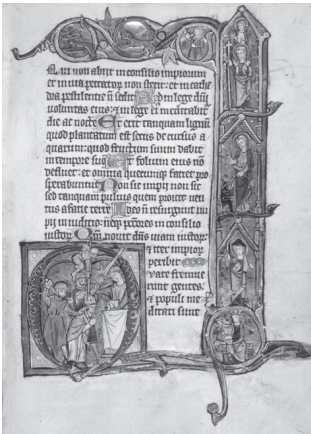 qui non abiit in consilio impiorum
et in via peccatorum non stetit: et in cathe
dra pestilentie non sedit. Sed in lege dñi
voluntas eius: et in lege ei meditabit
die ac nocte. Et erit tanquam lignum
quod plantatum est secus decursus a
quarum: quod fructum suum dabit
in tempore suo. Et folium eius nõ
defluet: et omnia quecunque faciet pro
sperabuntur. Non sic impii non sic
sed tanquam pulvis quem proicit ven
tus a facie terre. Ideo nõ resurgunt im
pii in iudicio: neque pctores in consilio
iustor. Qm̃ novit dñs viam iustor:
et iter impior
peribit
vare fremue
runt gentes:
et populi me
ditati sunt